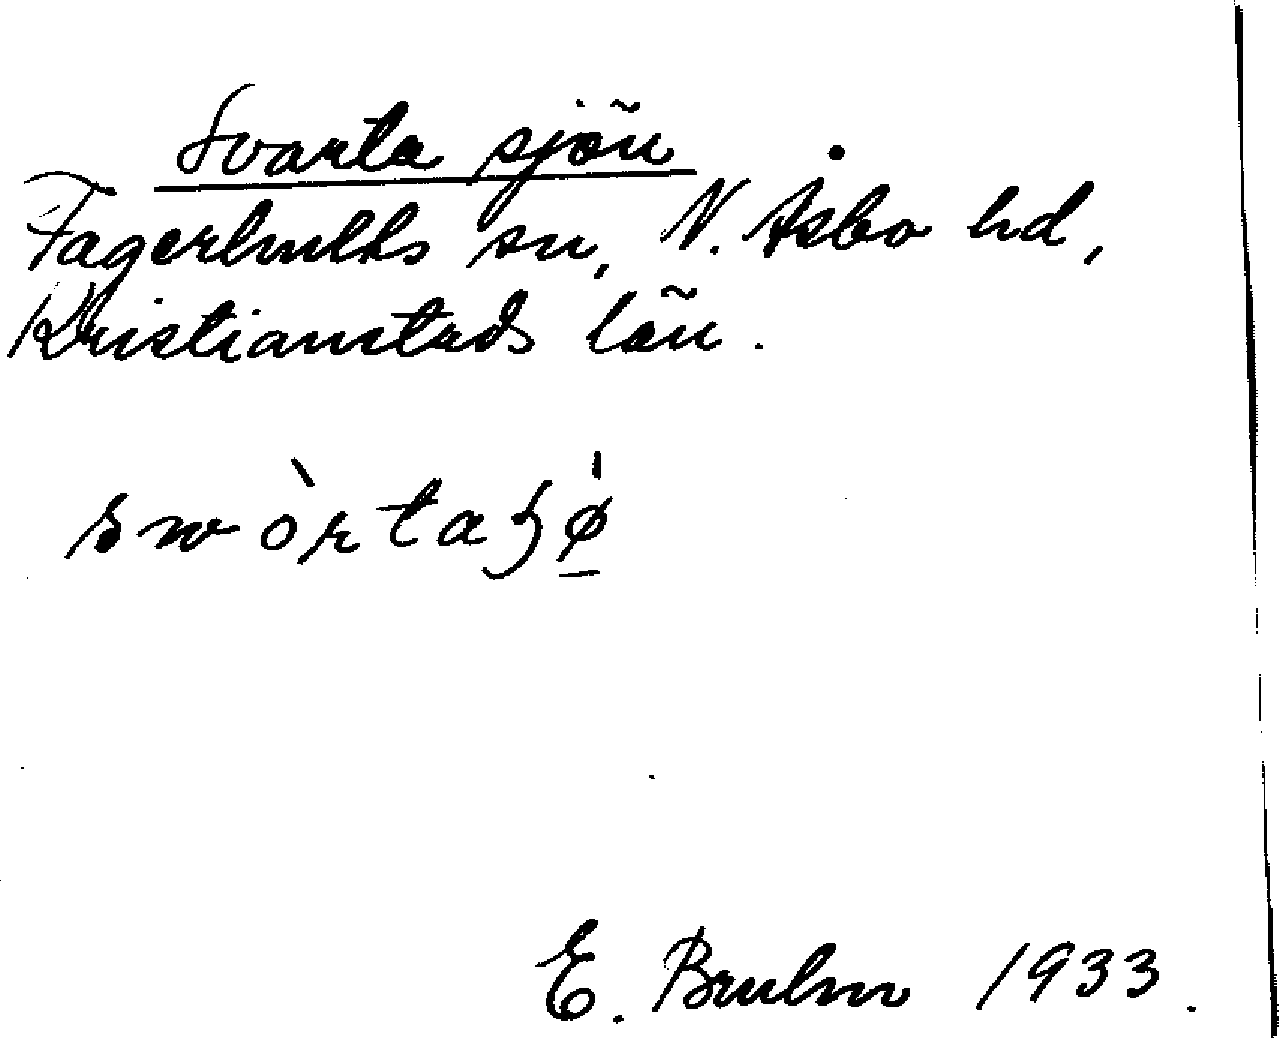 Svarta sjön
Fagerhults sn, N. Åsbo hd,
Kristianstads län.
swòrtaʖǿ̲
E. Bruhn 1933.